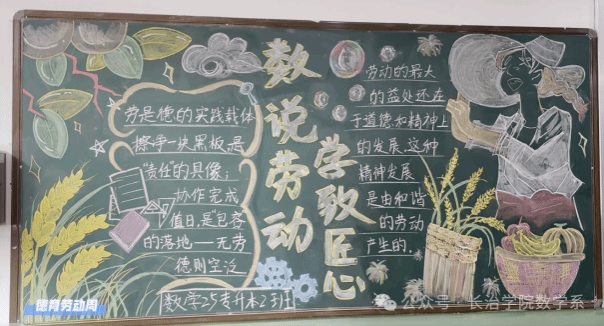 数说劳动
学致匠心
劳是德的实践载体
擦净一块黑板是
"责任"的具像;
协作完成
值日,是"包容"
的落地——无劳
德则空泛
劳动的最大
的益处还在
于道德和精神上
的发展,这种
精神发展
是由和谐
的劳动
产生的.
数学25专升本2班
德育劳动周
公众号·长治学院数学系